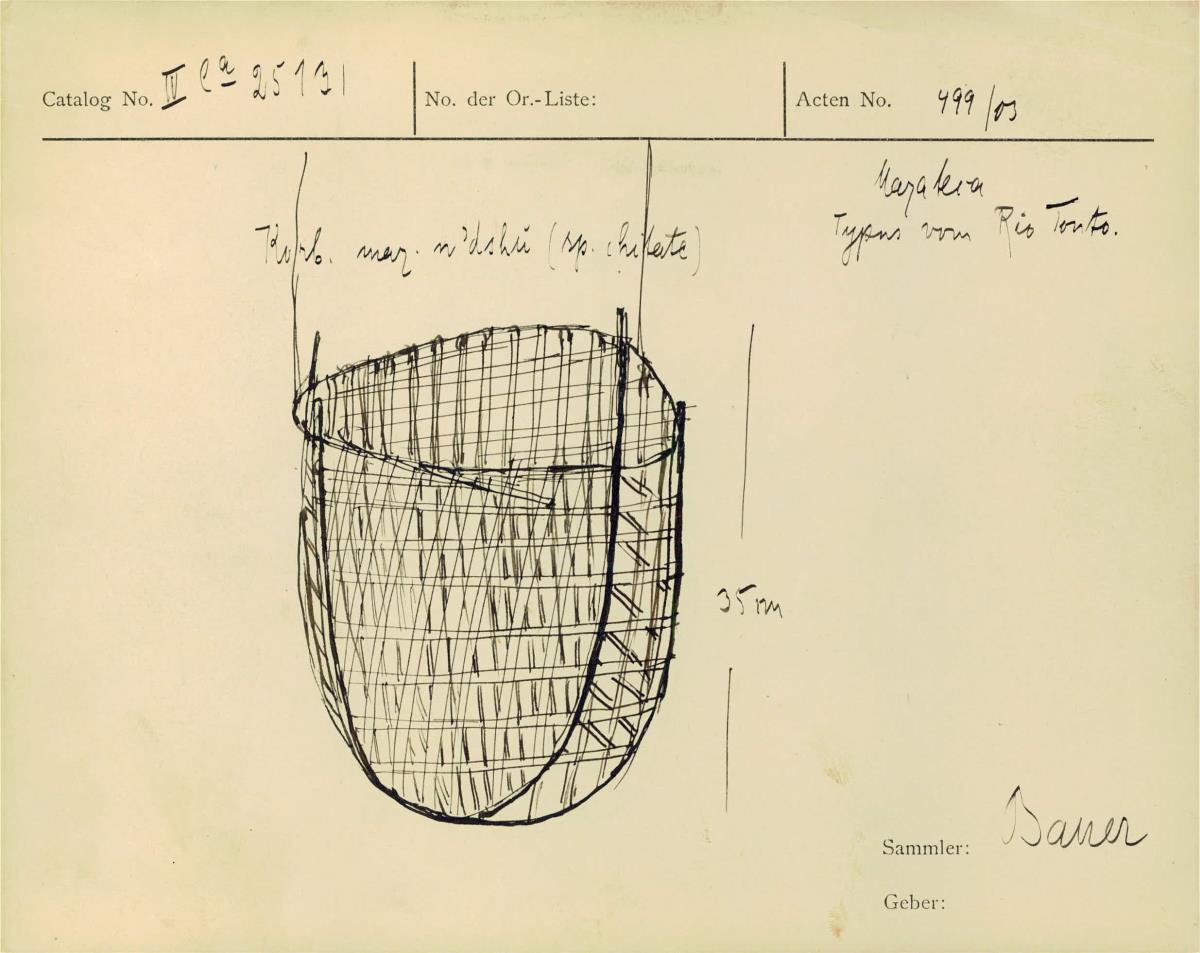 Catalog No. IV Ca 25131
No. der Or.-Liste:
Acten No. 499/03
Mazateca
Typus vom Rio Tonto.
Korb. maz. n'dshū (sp. chitate)
35 cm
Sammler: Bauer
Geber: